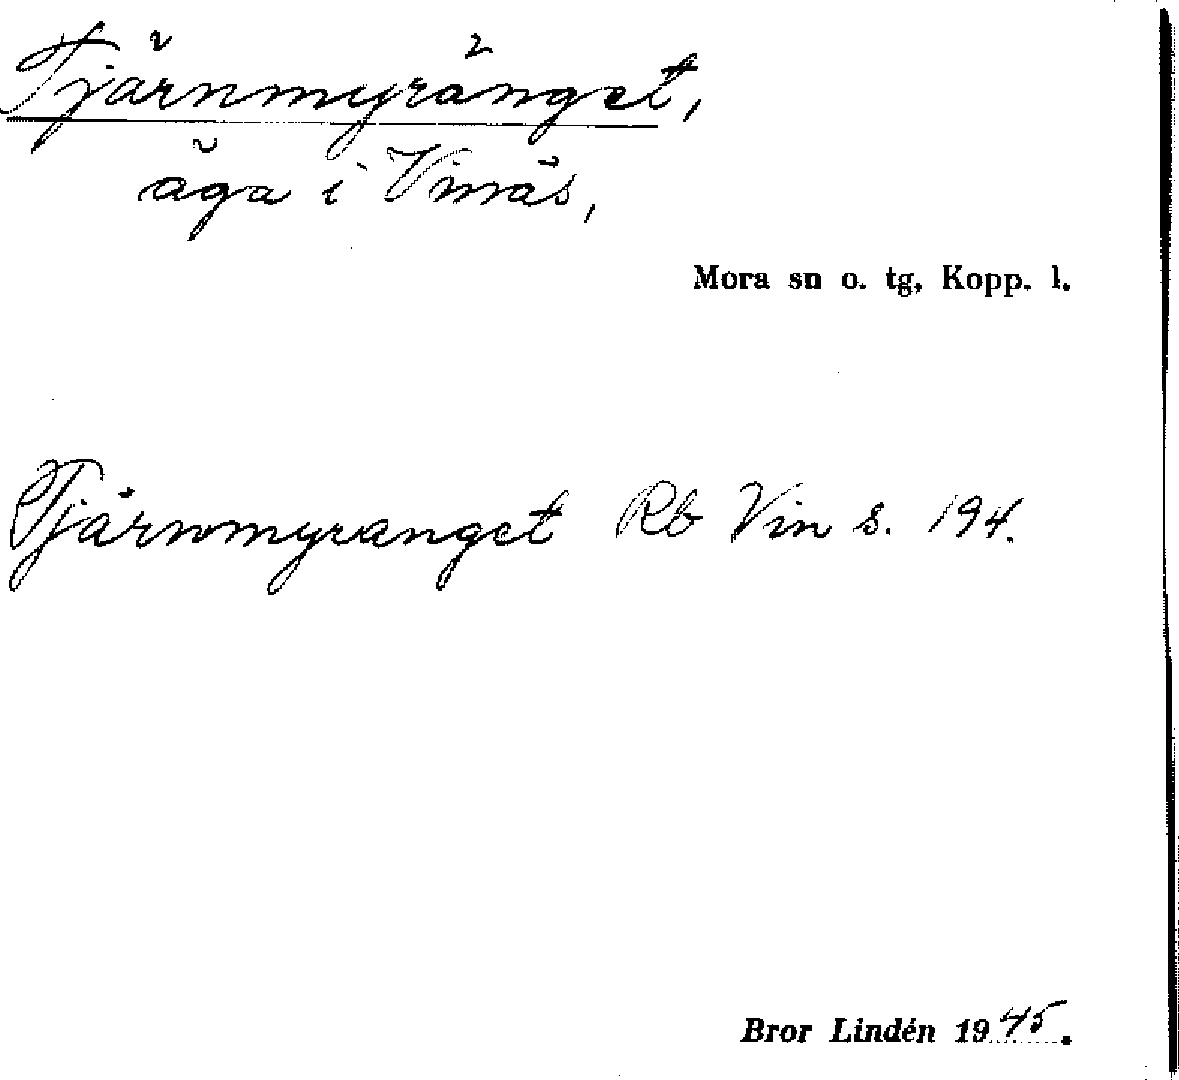 Tjärnmyränget,
äga i Vinäs,
Mora sn o. tg, Kopp. l.
Tjärnmyranget Rb Vin s. 194.
Bror Lindén 1945.